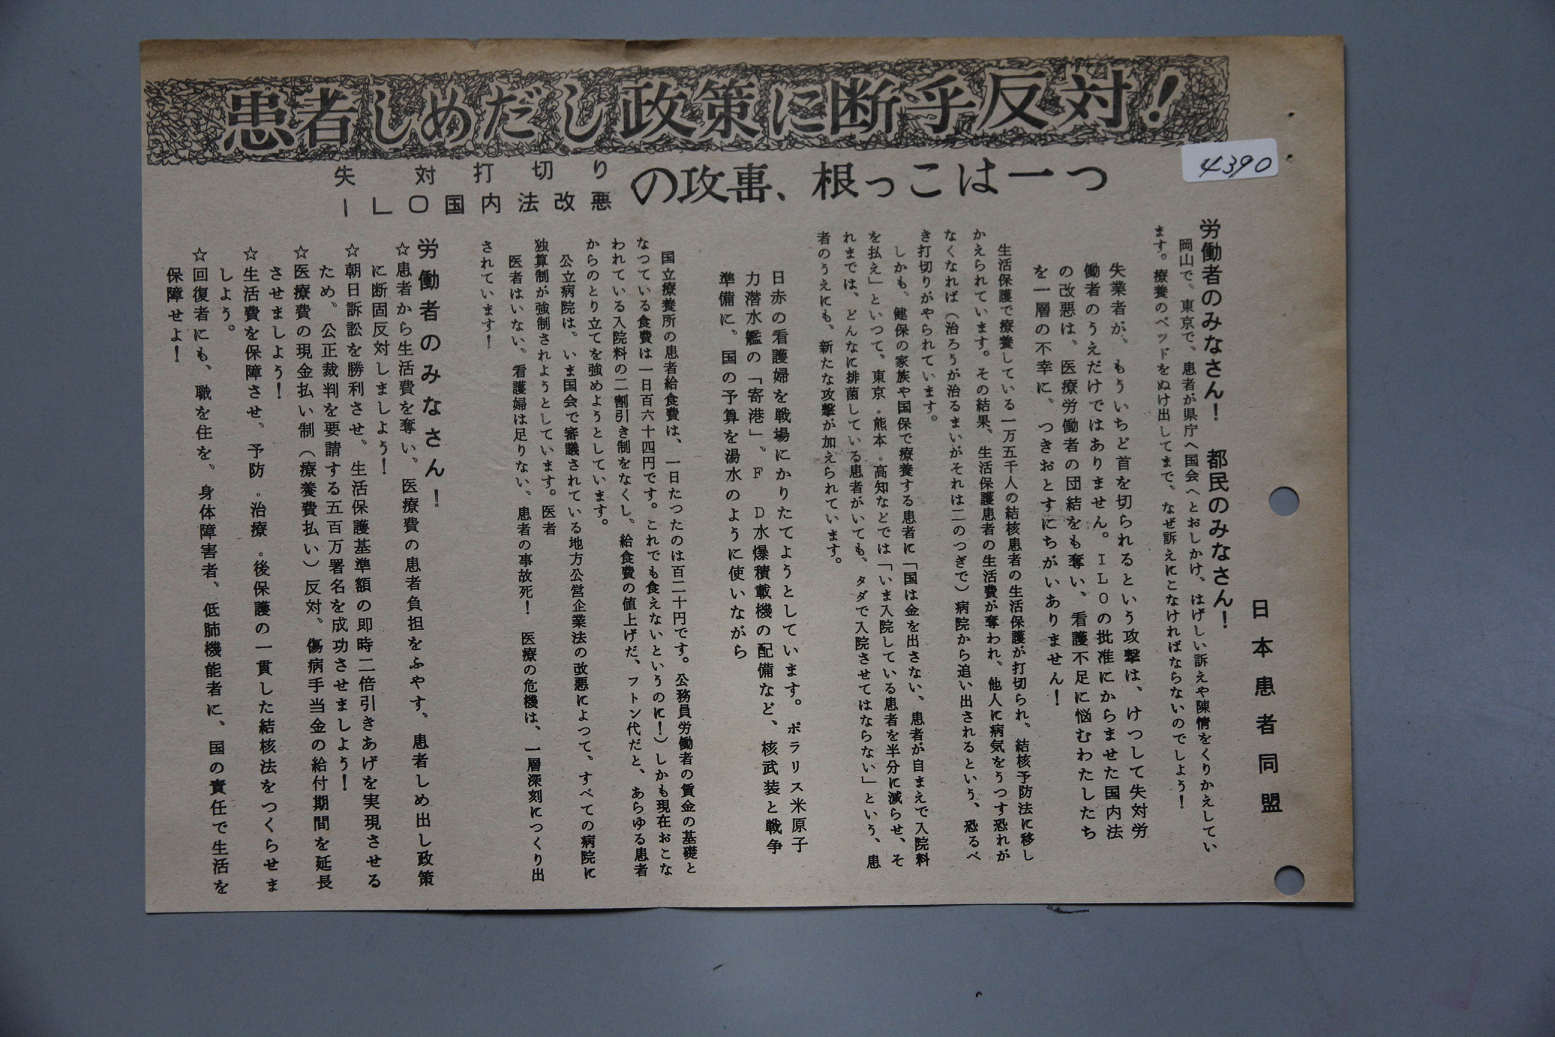 患者しめだし政策に断乎反対！
4390
失対打切り
ILO国内法改悪
の攻撃、根っこは一つ
日本患者同盟
労働者のみなさん！　都民のみなさん！
岡山で、東京で、患者が県庁へ国会へとおしかけ、はげしい訴えや陳情をくりかえしてい
ます。療養のベッドをぬけ出してまで、なぜ訴えにこなければならないのでしよう！
失業者が、もういちど首を切られるという攻撃は、けつして失対労
働者のうえだけではありません。ILOの批准にからませた国内法
の改悪は、医療労働者の団結をも奪い、看護不足に悩むわたしたち
を一層の不幸に、つきおとすにちがいありません！
生活保護で療養している一万五千人の結核患者の生活保護が打切られ、結核予防法に移し
かえられています。その結果、生活保護患者の生活費が奪われ、他人に病気をうつす恐れが
なくなれば（治ろうが治るまいがそれは二のつぎで）病院から追い出されるという、恐るべ
き打切りがやられています。
しかも、健保の家族や国保で療養する患者に「国は金を出さない、患者が自まえで入院料
を払え」といつて、東京・熊本・高知などでは「いま入院している患者を半分に減らせ、そ
れまでは、どんなに排菌している患者がいても、タダで入院させてはならない」という、患
者のうえにも、新たな攻撃が加えられています。
日赤の看護婦を戦場にかりたてようとしています。ポラリス米原子
力潜水艦の「寄港」、F D水爆積載機の配備など、核武装と戦争
準備に、国の予算を湯水のように使いながら
国立療養所の患者給食費は、一日たつたのは百二十円です。公務員労働者の賃金の基礎と
なつている食費は一日百六十四円です。これでも食えないというのに！）しかも現在おこな
われている入院料の二割引き制をなくし、給食費の値上げだ、フトン代だと、あらゆる患者
からのとり立てを強めようとしています。
公立病院は、いま国会で審議されている地方公営企業法の改悪によつて、すべての病院に
独算制が強制されようとしています。医者
医者はいない、看護婦は足りない、患者の事故死！　医療の危機は、一層深刻につくり出
されています！
労働者のみなさん！
☆患者から生活費を奪い、医療費の患者負担をふやす、患者しめ出し政策
に断固反対しましよう！
☆朝日訴訟を勝利させ、生活保護基準額の即時二倍引きあげを実現させる
ため、公正裁判を要請する五百万署名を成功させましよう！
☆医療費の現金払い制（療養費払い）反対、傷病手当金の給付期間を延長
させましよう！
☆生活費を保障させ、予防・治療・後保護の一貫した結核法をつくらせま
しよう。
☆回復者にも、職を住を。身体障害者、低肺機能者に、国の責任で生活を
保障せよ！